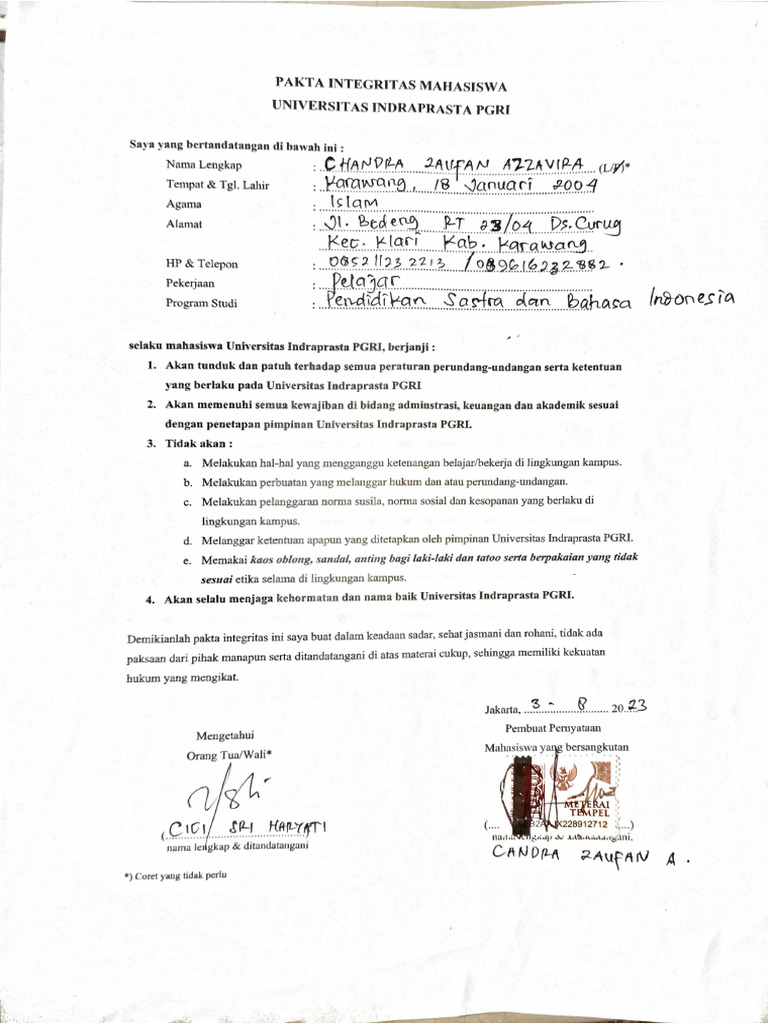 PAKTA INTEGRITAS MAHASISWA
UNIVERSITAS INDRAPRASTA PGRI
Saya yang bertandatangan di bawah ini :
Nama Lengkap : CHANDRA ZAUFAN AZZAVIRA (L/P)*
Tempat & Tgl. Lahir : Karawang, 18 Januari 2004
Agama : Islam
Alamat : Jl. Bedeng RT 23/04 Ds. Curug
Kec. Klari Kab. Karawang
HP & Telepon : 085211232213 / 089616232882.
Pekerjaan : Pelajar
Program Studi : Pendidikan Sastra dan Bahasa Indonesia
selaku mahasiswa Universitas Indraprasta PGRI, berjanji :
1. Akan tunduk dan patuh terhadap semua peraturan perundang-undangan serta ketentuan
yang berlaku pada Universitas Indraprasta PGRI
2. Akan memenuhi semua kewajiban di bidang adminstrasi, keuangan dan akademik sesuai
dengan penetapan pimpinan Universitas Indraprasta PGRI.
3. Tidak akan :
a. Melakukan hal-hal yang mengganggu ketenangan belajar/bekerja di lingkungan kampus.
b. Melakukan perbuatan yang melanggar hukum dan atau perundang-undangan.
c. Melakukan pelanggaran norma susila, norma sosial dan kesopanan yang berlaku di
lingkungan kampus.
d. Melanggar ketentuan apapun yang ditetapkan oleh pimpinan Universitas Indraprasta PGRI.
e. Memakai kaos oblong, sandal, anting bagi laki-laki dan tatoo serta berpakaian yang tidak
sesuai etika selama di lingkungan kampus.
4. Akan selalu menjaga kehormatan dan nama baik Universitas Indraprasta PGRI.
Demikianlah pakta integritas ini saya buat dalam keadaan sadar, sehat jasmani dan rohani, tidak ada
paksaan dari pihak manapun serta ditandatangani di atas materai cukup, sehingga memiliki kekuatan
hukum yang mengikat.
Jakarta, 3 - 8 2023
Pembuat Pernyataan
Mahasiswa yang bersangkutan
Mengetahui
Orang Tua/Wali*
METERAI
TEMPEL
X228912712
(CICI SRI HARYATI
nama lengkap & ditandatangani
CANDRA ZAUFAN A.
*) Coret yang tidak perlu